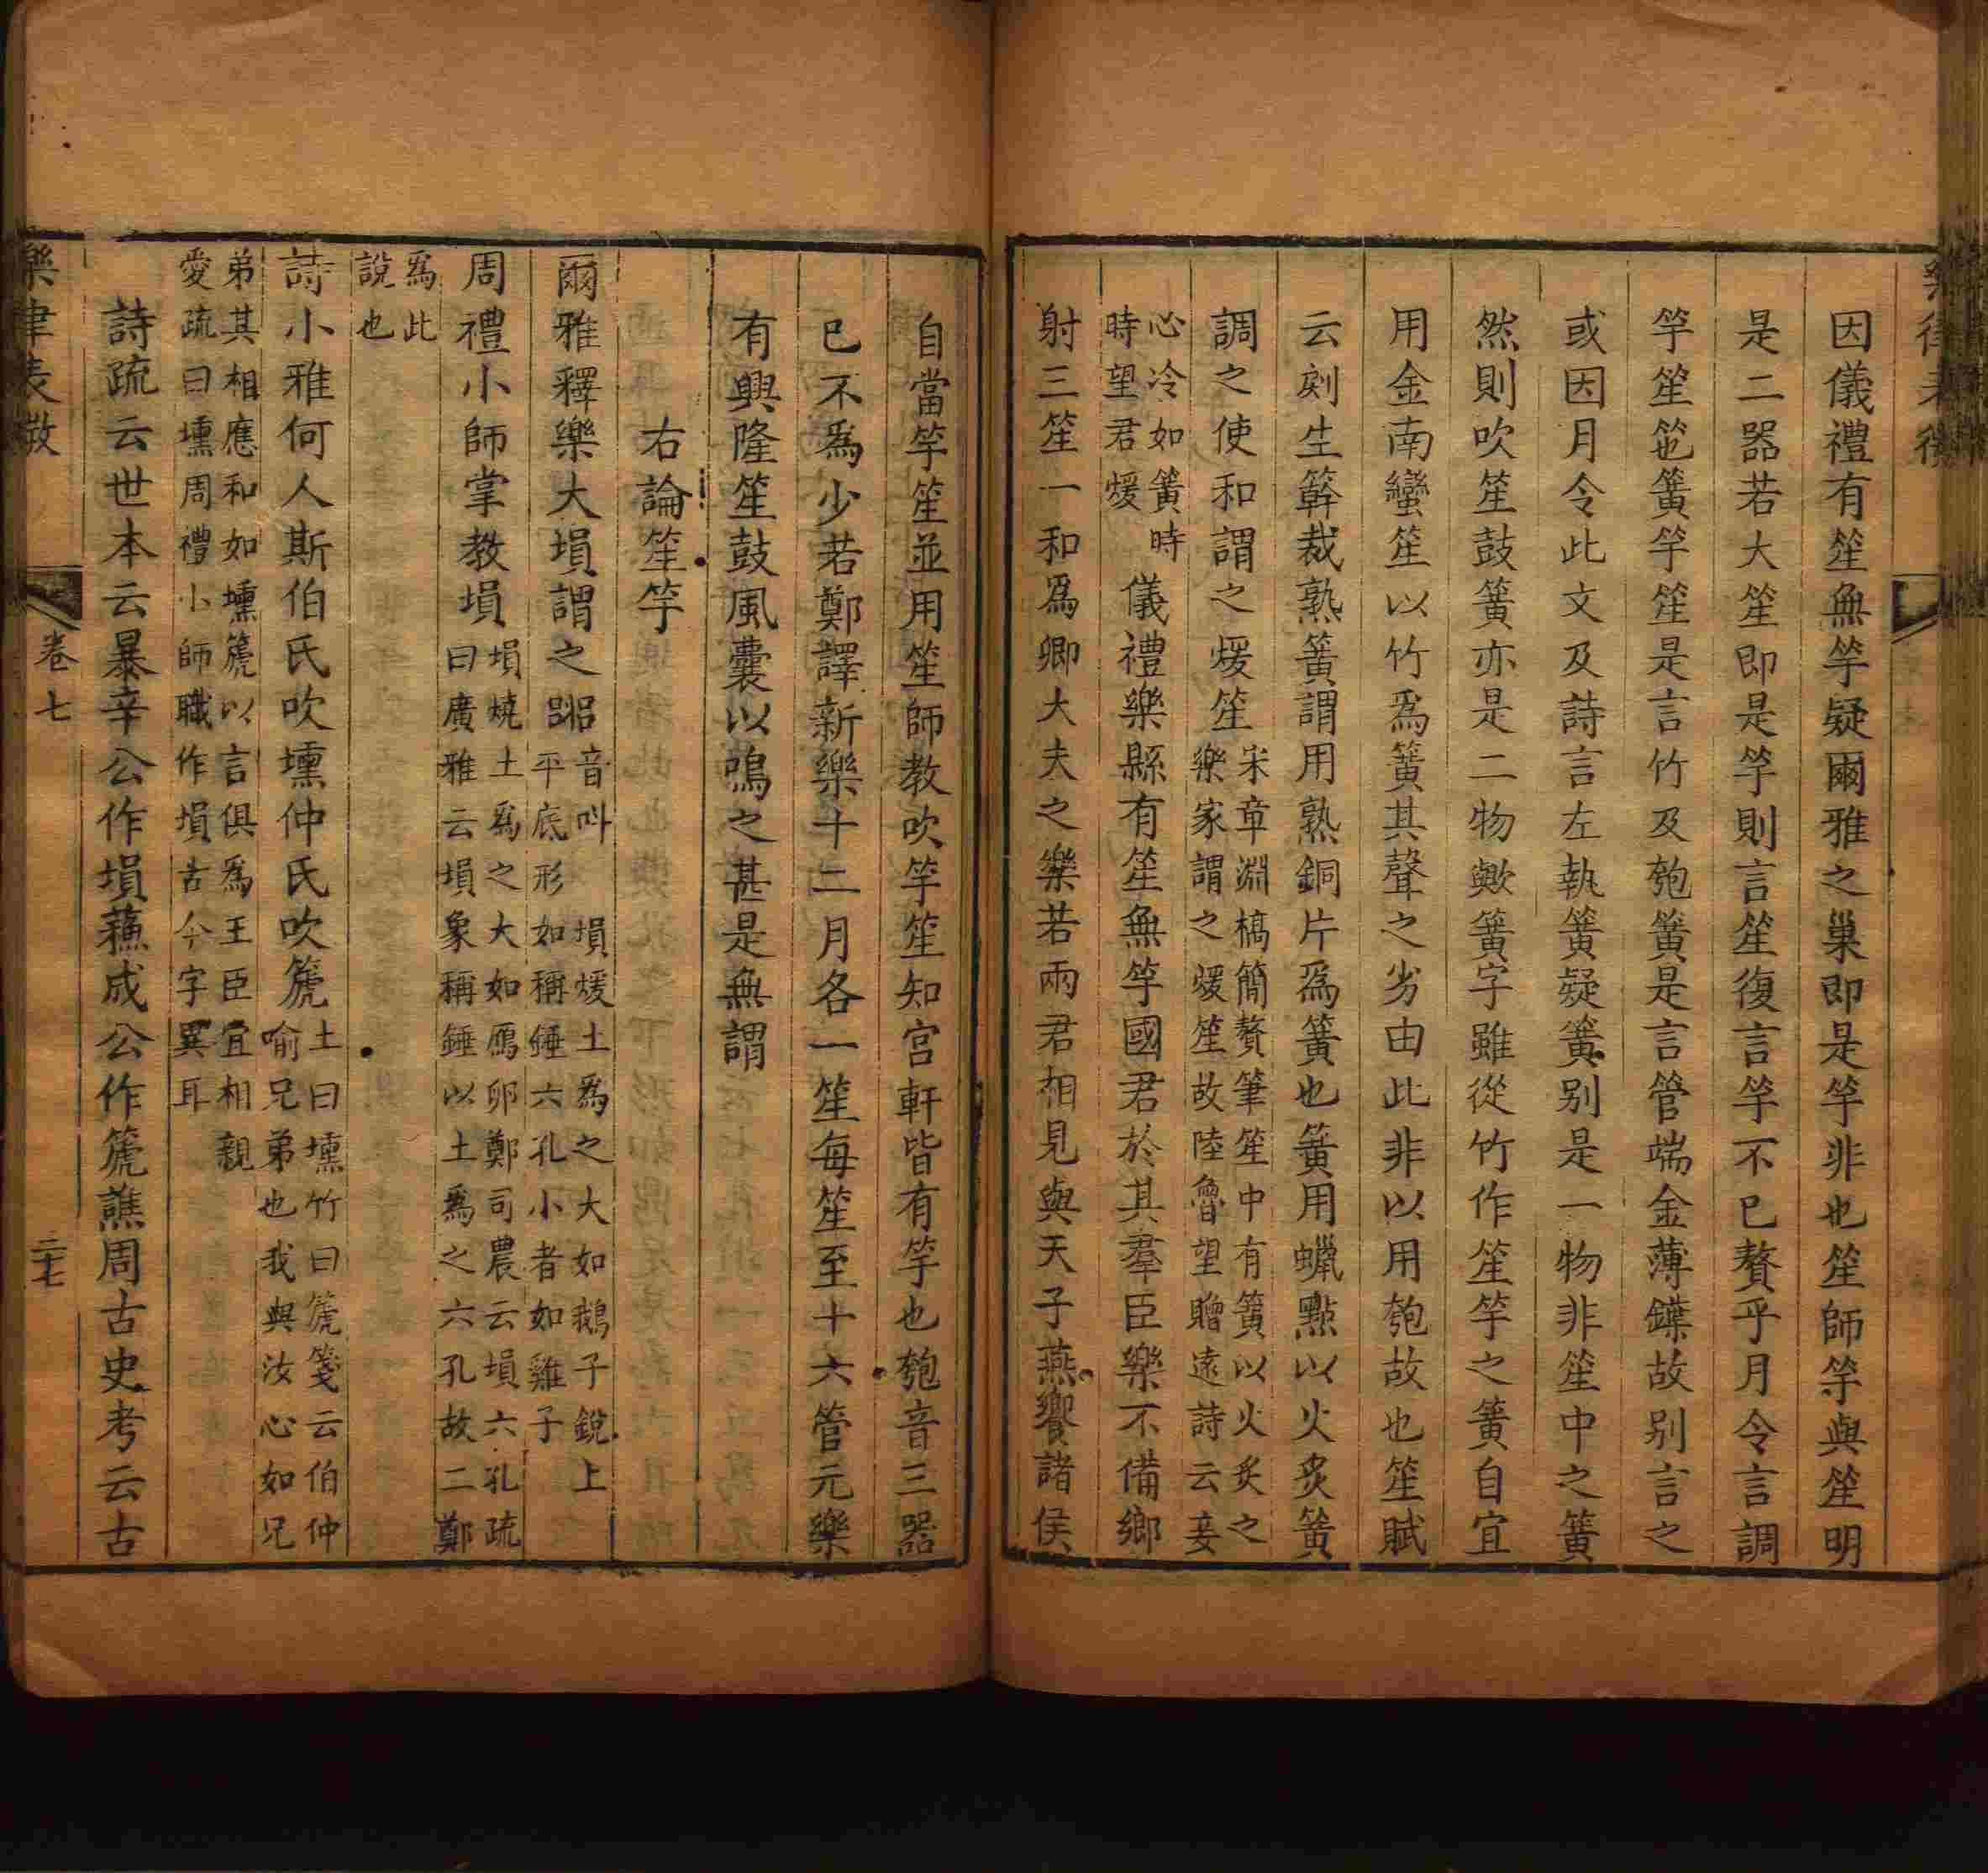 因儀禮有笙無竽疑爾雅之巢即是竽非也笙師竽與笙明
是二器若大笙即是竽則言笙復言竽不已贅乎月令言調
竽笙笆簧竽笙是言竹及匏簧是言管端金薄鐷故别言之
或因月令此文及詩言左執簧疑簧别是一物非笙中之簧
然則吹笙鼓簧亦是二物歟簧字雖從竹作笙竽之簧自宜
用金南蠻笙以竹爲簧其聲之劣由此非以用匏故也笙賦
云剡生簳裁熟簧謂用熟銅片爲簧也簧用蠟點以火炙簧
調之使和謂之煖笙
宋章淵槁簡贅筆笙中有簧以火炙之
樂家謂之煖笙故陸魯望贈遠詩云妾
心冷如簧時
時望君煖
儀禮樂縣有笙無竽國君於其羣臣樂不備鄉
射三笙一和爲卿大夫之樂若兩君相見與天子燕饗諸侯
自當竽笙並用笙師教吹竽笙知宫軒皆有竽也匏音三器
已不爲少若鄭譯新樂十二月各一笙每笙至十六管元樂
有興隆笙鼓風囊以鳴之甚是無謂
右論笙竽
爾雅釋樂大塤謂之䚯
音叫　塤煖土爲之大如鵝子銳上
平底形如稱錘六孔小者如雞子
周禮小師掌教塤
塤燒土爲之大如鴈卵鄭司農云塤六孔疏
曰廣雅云塤象稱錘以土爲之六孔故二鄭
爲此
説也
詩小雅何人斯伯氏吹壎仲氏吹篪
土曰壎竹曰篪箋云伯仲
喻兄弟也我與汝心如兄
弟其相應和如壎篪以言俱爲王臣宜相親
愛疏曰壎周禮小師職作塤古今字異耳
詩疏云世本云暴辛公作塤蘓成公作篪譙周古史考云古
卷七
二十七